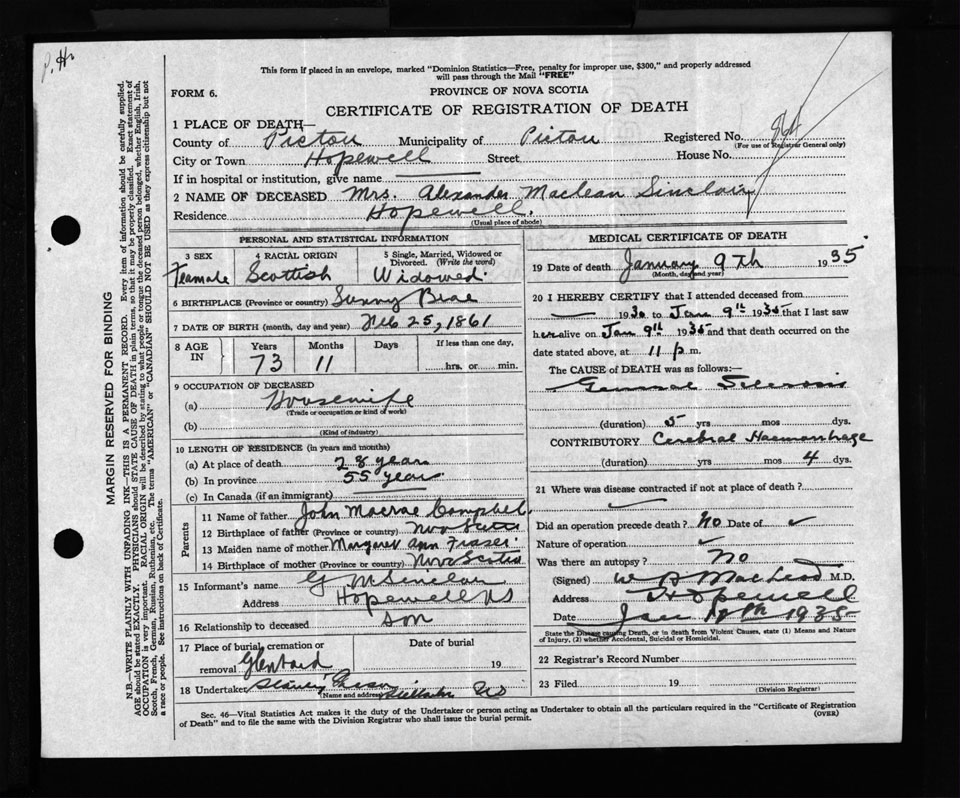 P. H.
This form if placed in an envelope, marked "Dominion Statistics—Free, penalty for improper use, $300," and properly addressed
will pass through the Mail "FREE"
FORM 6.
PROVINCE OF NOVA SCOTIA
CERTIFICATE OF REGISTRATION OF DEATH
1 PLACE OF DEATH—
County of Pictou Municipality of Pictou Registered No. 864
(For use of Registrar General only)
City or Town Hopewell Street House No.
If in hospital or institution, give name
2 NAME OF DECEASED Mrs. Alexander Maclean Sinclair
Residence Hopewell.
(Usual place of abode)
PERSONAL AND STATISTICAL INFORMATION
3 SEX 4 RACIAL ORIGIN 5 Single, Married, Widowed or Divorced. (Write the word)
Feamale Scottish Widowed.
6 BIRTHPLACE (Province or country) Sunny Brae
7 DATE OF BIRTH (month, day and year) Feb 25, 1861
8 AGE IN Years Months Days If less than one day,
73 11 hrs. or min.
9 OCCUPATION OF DECEASED
(a) Housewife
(Trade or occupation or kind of work)
(b)
(Kind of industry)
10 LENGTH OF RESIDENCE (in years and months)
(a) At place of death 28 years
(b) In province 55 year
(c) In Canada (if an immigrant)
Parents
11 Name of father John Macrae Campbel.
12 Birthplace of father (Province or country) Nova Scotia
13 Maiden name of mother Margaret Ann Fraser.
14 Birthplace of mother (Province or country) Nova Scotia
15 Informant's name G M Sinclair
Address Hopewell NS
16 Relationship to deceased son
17 Place of burial, cremation or
removal Glenbard Date of burial 19
18 Undertaker
Name and address
MEDICAL CERTIFICATE OF DEATH
19 Date of death January 9th 1935
(Month, day and year)
20 I HEREBY CERTIFY that I attended deceased from
193 to Jan 9th 1935 that I last saw
her alive on Jan 9th 1935 and that death occurred on
date stated above, at 11 p m.
The CAUSE of DEATH was as follows:—
General Sclerosis
(duration) 5 yrs mos dys.
CONTRIBUTORY Cerebral Haemorrhage
(duration) yrs mos 4 dys.
21 Where was disease contracted if not at place of death?
Did an operation precede death? No Date of
Nature of operation
Was there an autopsy? No
(Signed) W A MacLeod M.D.
Address Hopewell
Date Jan 1935
State the Disease causing Death, or in death from Violent Causes, state (1) Means and Nature
of Injury, (2) whether Accidental, Suicidal or Homicidal.
22 Registrar's Record Number
23 Filed 19
(Division Registrar)
Sec. 46—Vital Statistics Act makes it the duty of the Undertaker or person acting as Undertaker to obtain all the particulars required in the "Certificate of Registration
of Death" and to file the same with the Division Registrar who shall issue the burial permit. (OVER)
MARGIN RESERVED FOR BINDING
N.B.—WRITE PLAINLY WITH UNFADING INK—THIS IS A PERMANENT RECORD. Every item of information should be carefully supplied.
AGE should be stated EXACTLY. PHYSICIANS should STATE CAUSE OF DEATH in plain terms, so that it may be properly classified. Exact statement of
OCCUPATION is very important. RACIAL ORIGIN will be described by stating to what people or tongue the deceased person belonged, whether English, Irish,
Scotch, French, German, Russian, Ruthenian, etc. The terms "AMERICAN" or "CANADIAN" SHOULD NOT BE USED as they express citizenship but not
a race or people. See instructions on back of Certificate.